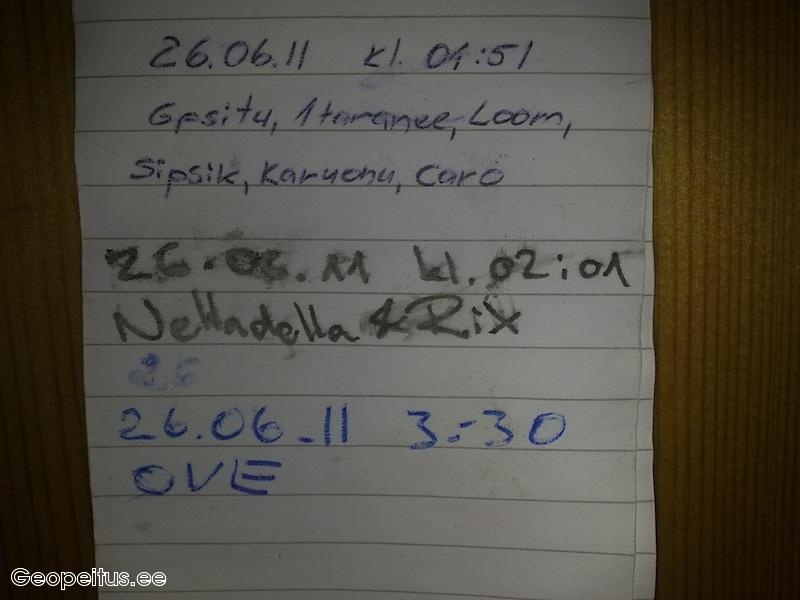 26.06.11 kl. 01:51
Gpsitu, 1taranee, Loom,
Sipsik, Karuonu, Caro
26.06.11 kl. 02:01
Nelladella & Rix
26
26.06.11 3:30
OVE
Geopeitus.ee